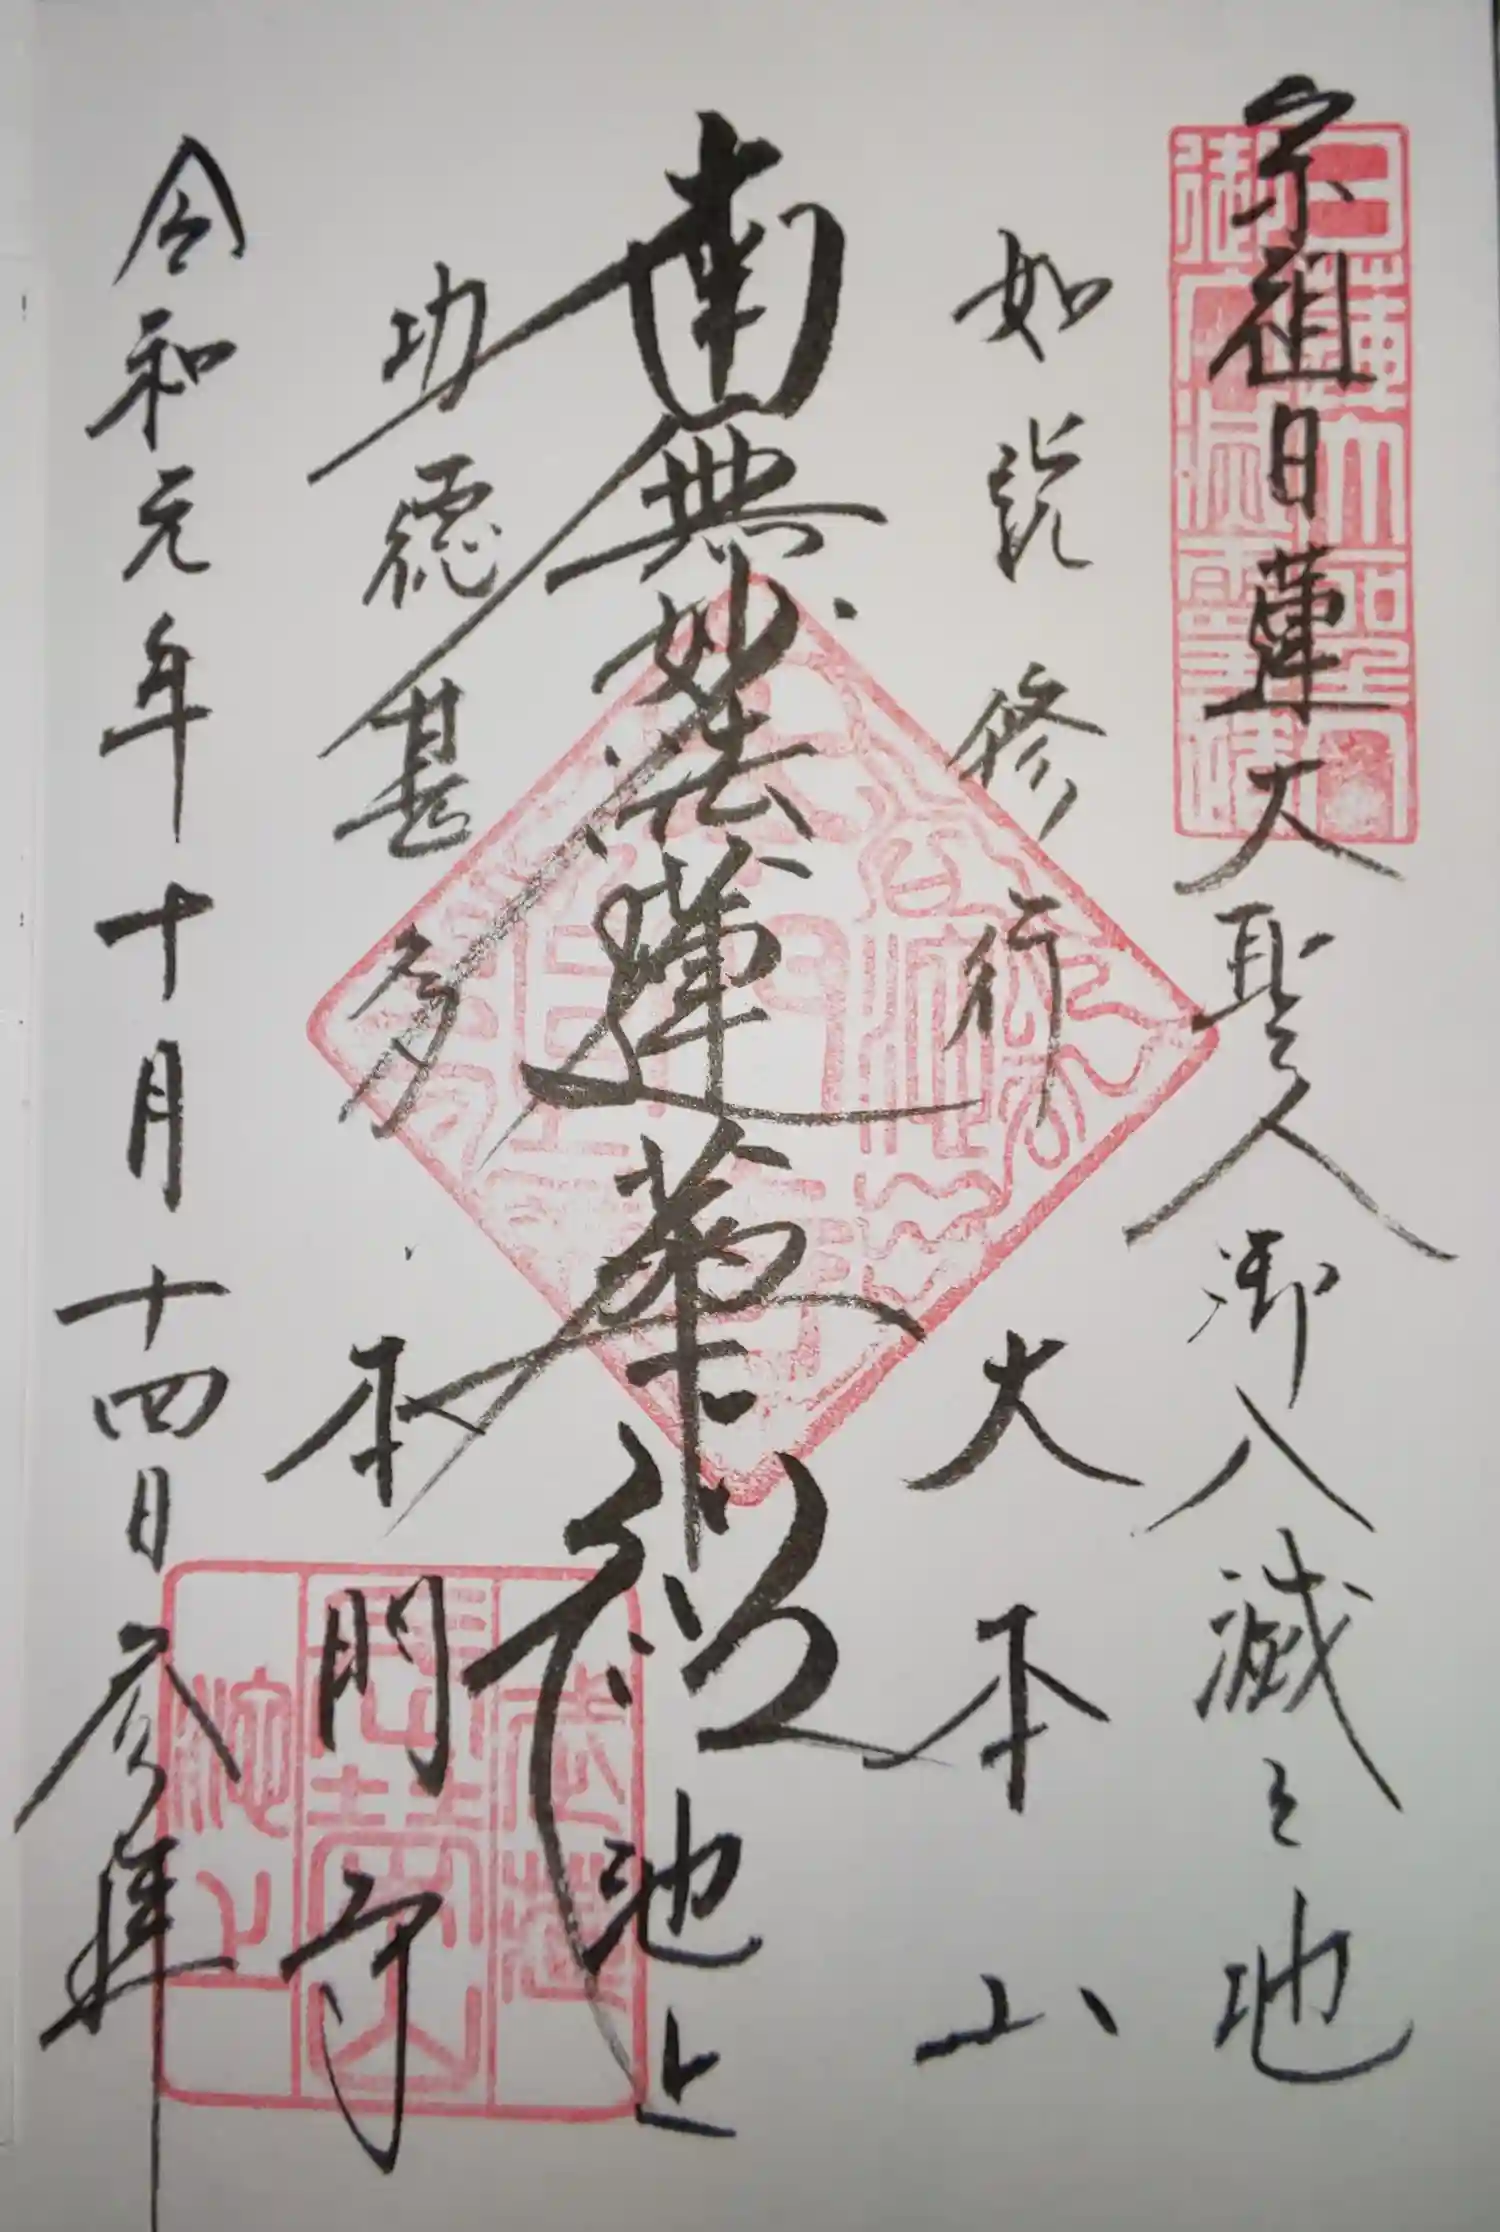 宗祖日蓮大聖人御入滅之地
如説修行
大本山
南無妙法蓮華経
池上
功徳甚多
本門寺
令和元年十月十四日参拝
日蓮大聖人
御入滅霊蹟
長栄山
池上